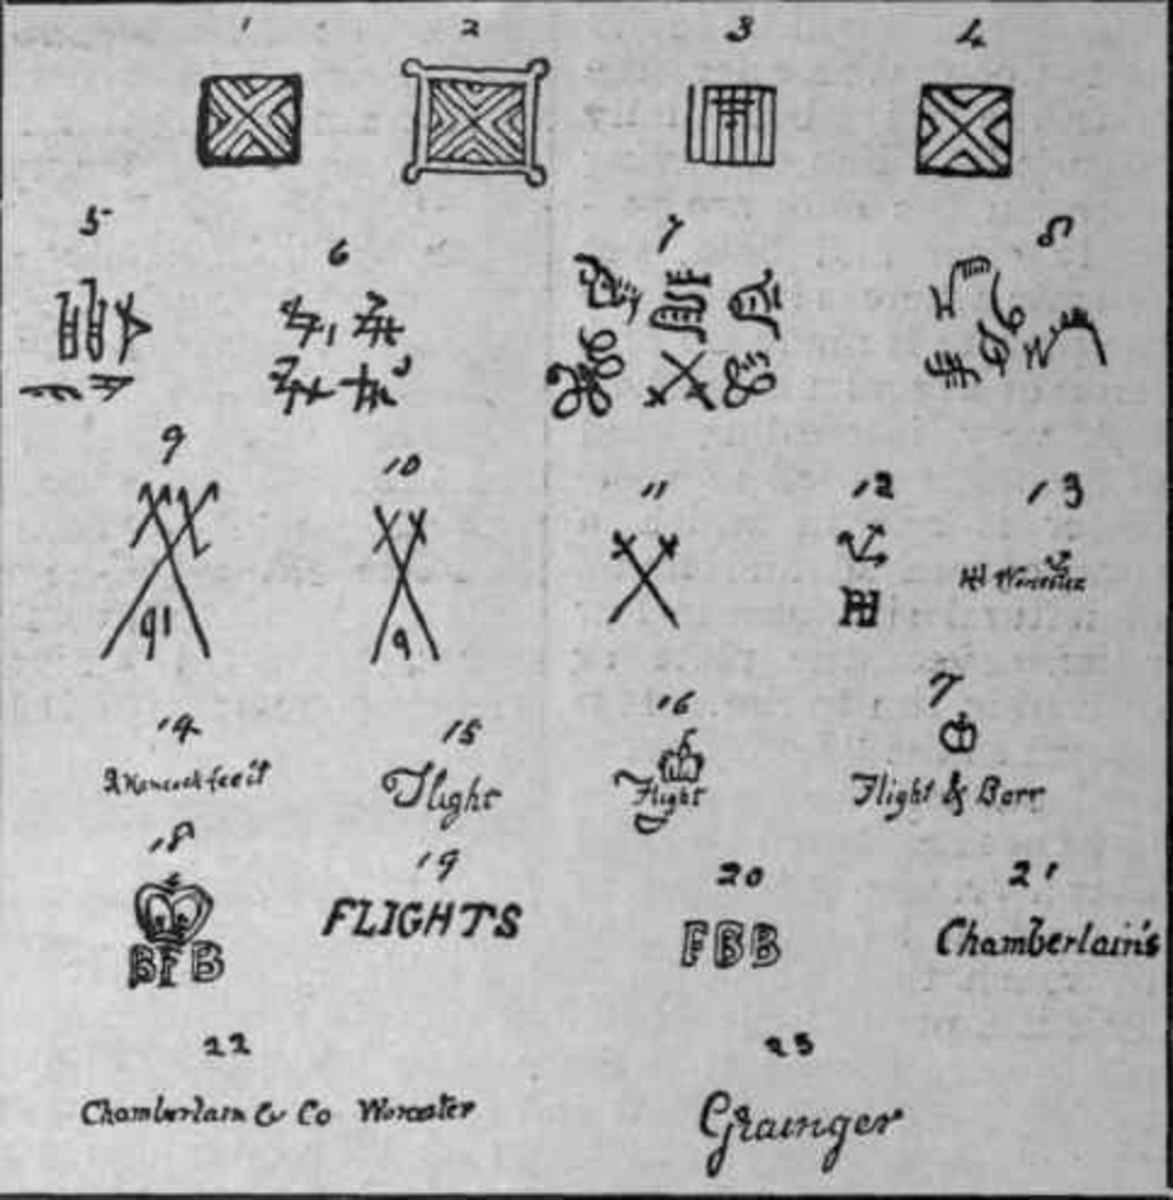 1 2 3 4
5 6 7 8
9 10 11 12 13
91 9
H Worcester
14 15 16 17
R Hancock fecit
Flight
Flight
Flight & Barr
18 19 20 21
BFB
FLIGHTS
FBB
Chamberlain's
22 23
Chamberlain & Co Worcester
Grainger